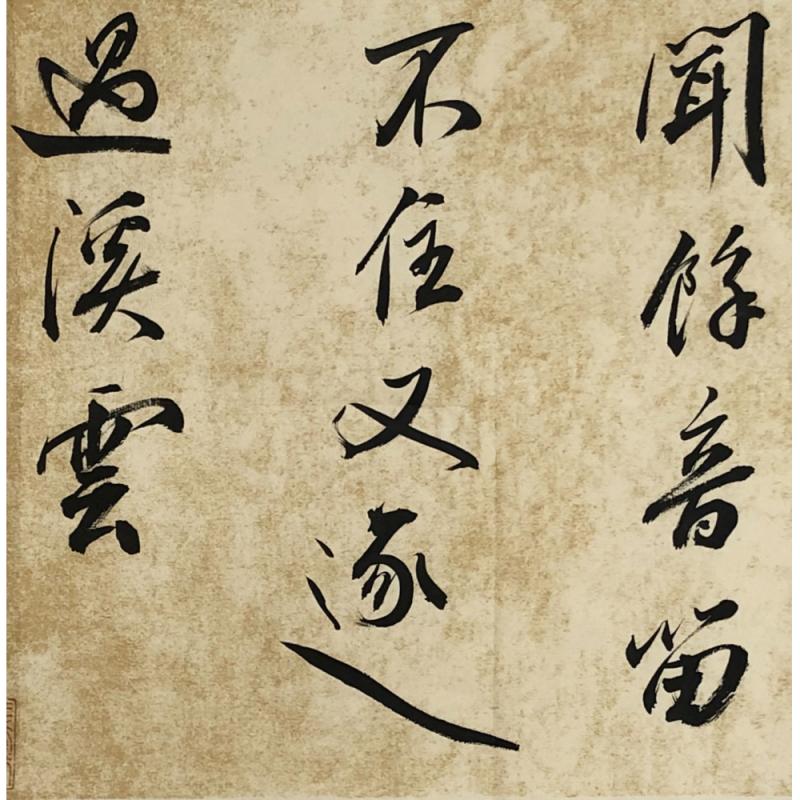 聞餘音留
不住又逐
過溪雲